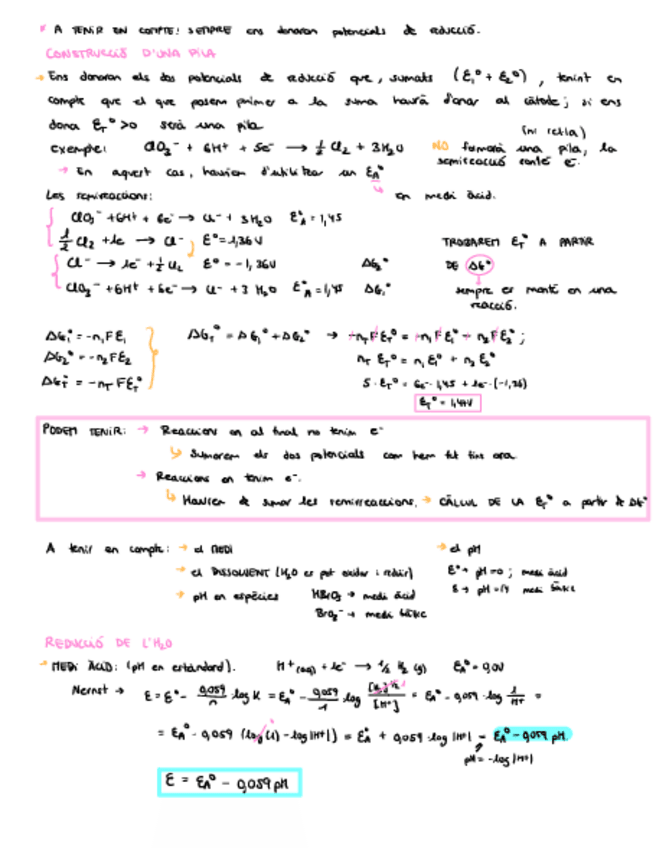 * A TENIR EN COMPTE! SEMPRE ens donaran potencials de reducció.
CONSTRUCCIÓ D'UNA PILA
→ Ens donaran els dos potencials de reducció que, sumats (E₁° + E₂°), tenint en
compte que el que posem primer a la suma haurà d'anar al càtode; si ens
dona E_T° >0 serà una pila
Exemple: ClO₃⁻ + 6H⁺ + 5e⁻ → ½ Cl₂ + 3H₂O NO formarà una pila, la (ni cel·la)
semireacció conté e⁻.
→ En aquest cas, hauríem d'utilitzar un E_A°
↳ en medi àcid.
Les semireaccions:
ClO₃⁻ + 6H⁺ + 6e⁻ → Cl⁻ + 3H₂O E_A° = 1,45
½ Cl₂ + 1e → Cl⁻ E° = 1,36V TROBAREM E_T° A PARTIR
Cl⁻ → 1e⁻ + ½ Cl₂ E° = -1,36V ΔG₂° DE ΔG°
ClO₃⁻ + 6H⁺ + 6e⁻ → Cl⁻ + 3 H₂O E_A° = 1,45 ΔG₁° sempre es manté en una
reacció.
ΔG₁° = -n₁FE₁ ΔG_T° = ΔG₁° + ΔG₂° → -n_T F E_T° = -n₁ F E₁° - n₂ F E₂° ;
ΔG₂° = -n₂FE₂ n_T E_T° = n₁ E₁° + n₂ E₂°
ΔG_T° = -n_T FE_T° 5 · E_T° = 6e⁻ · 1,45 + 1e⁻ · (-1,36)
E_T° = 1,47V
PODEM TENIR: → Reaccions en al final no tenim e⁻
↳ Sumarem els dos potencials com hem fet fins ara.
→ Reaccions on tenim e⁻.
↳ Haurem de sumar les semireaccions. → CÀLCUL DE LA E_T° a partir de ΔG°
A tenir en compte: → el MEDI → el pH
→ el DISSOLVENT (H₂O es pot oxidar i reduir) E° → pH=0 ; medi àcid
→ pH en espècies HBrO₃ → medi àcid E → pH=14 medi bàsic
BrO₃⁻ → medi bàsic
REDUCCIÓ DE L'H₂O
→ MEDI ÀCID: (pH en estàndard). H⁺(aq) + 1e⁻ → ½ H₂ (g) E_A° = 0,0V
Nernst → E = E° - 0,059/n log K = E_A° - 0,059/1 log [H₂]^1/2/[H⁺] = E_A° - 0,059 · log 1/H⁺ =
= E_A° - 0,059 (log(1) - log|H⁺|) = E_A° + 0,059 · log |H⁺| = E_A° - 0,059 pH.
pH = -log|H⁺|
E = E_A° - 0,059 pH